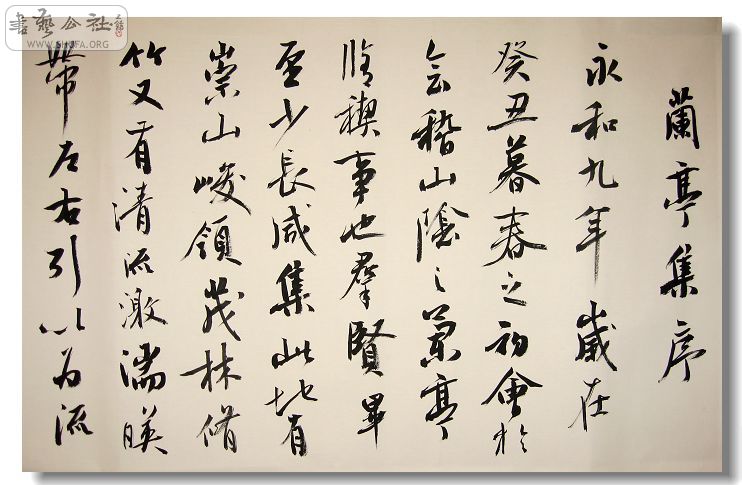 蘭亭集序
永和九年歲在
癸丑暮春之初會於
会稽山陰之蘭亭
脩禊事也群賢畢
至少長咸集此地有
崇山峻領茂林脩
竹又有清流激湍暎
帶左右引以为流
書藝公社
WWW.SHUFA.ORG